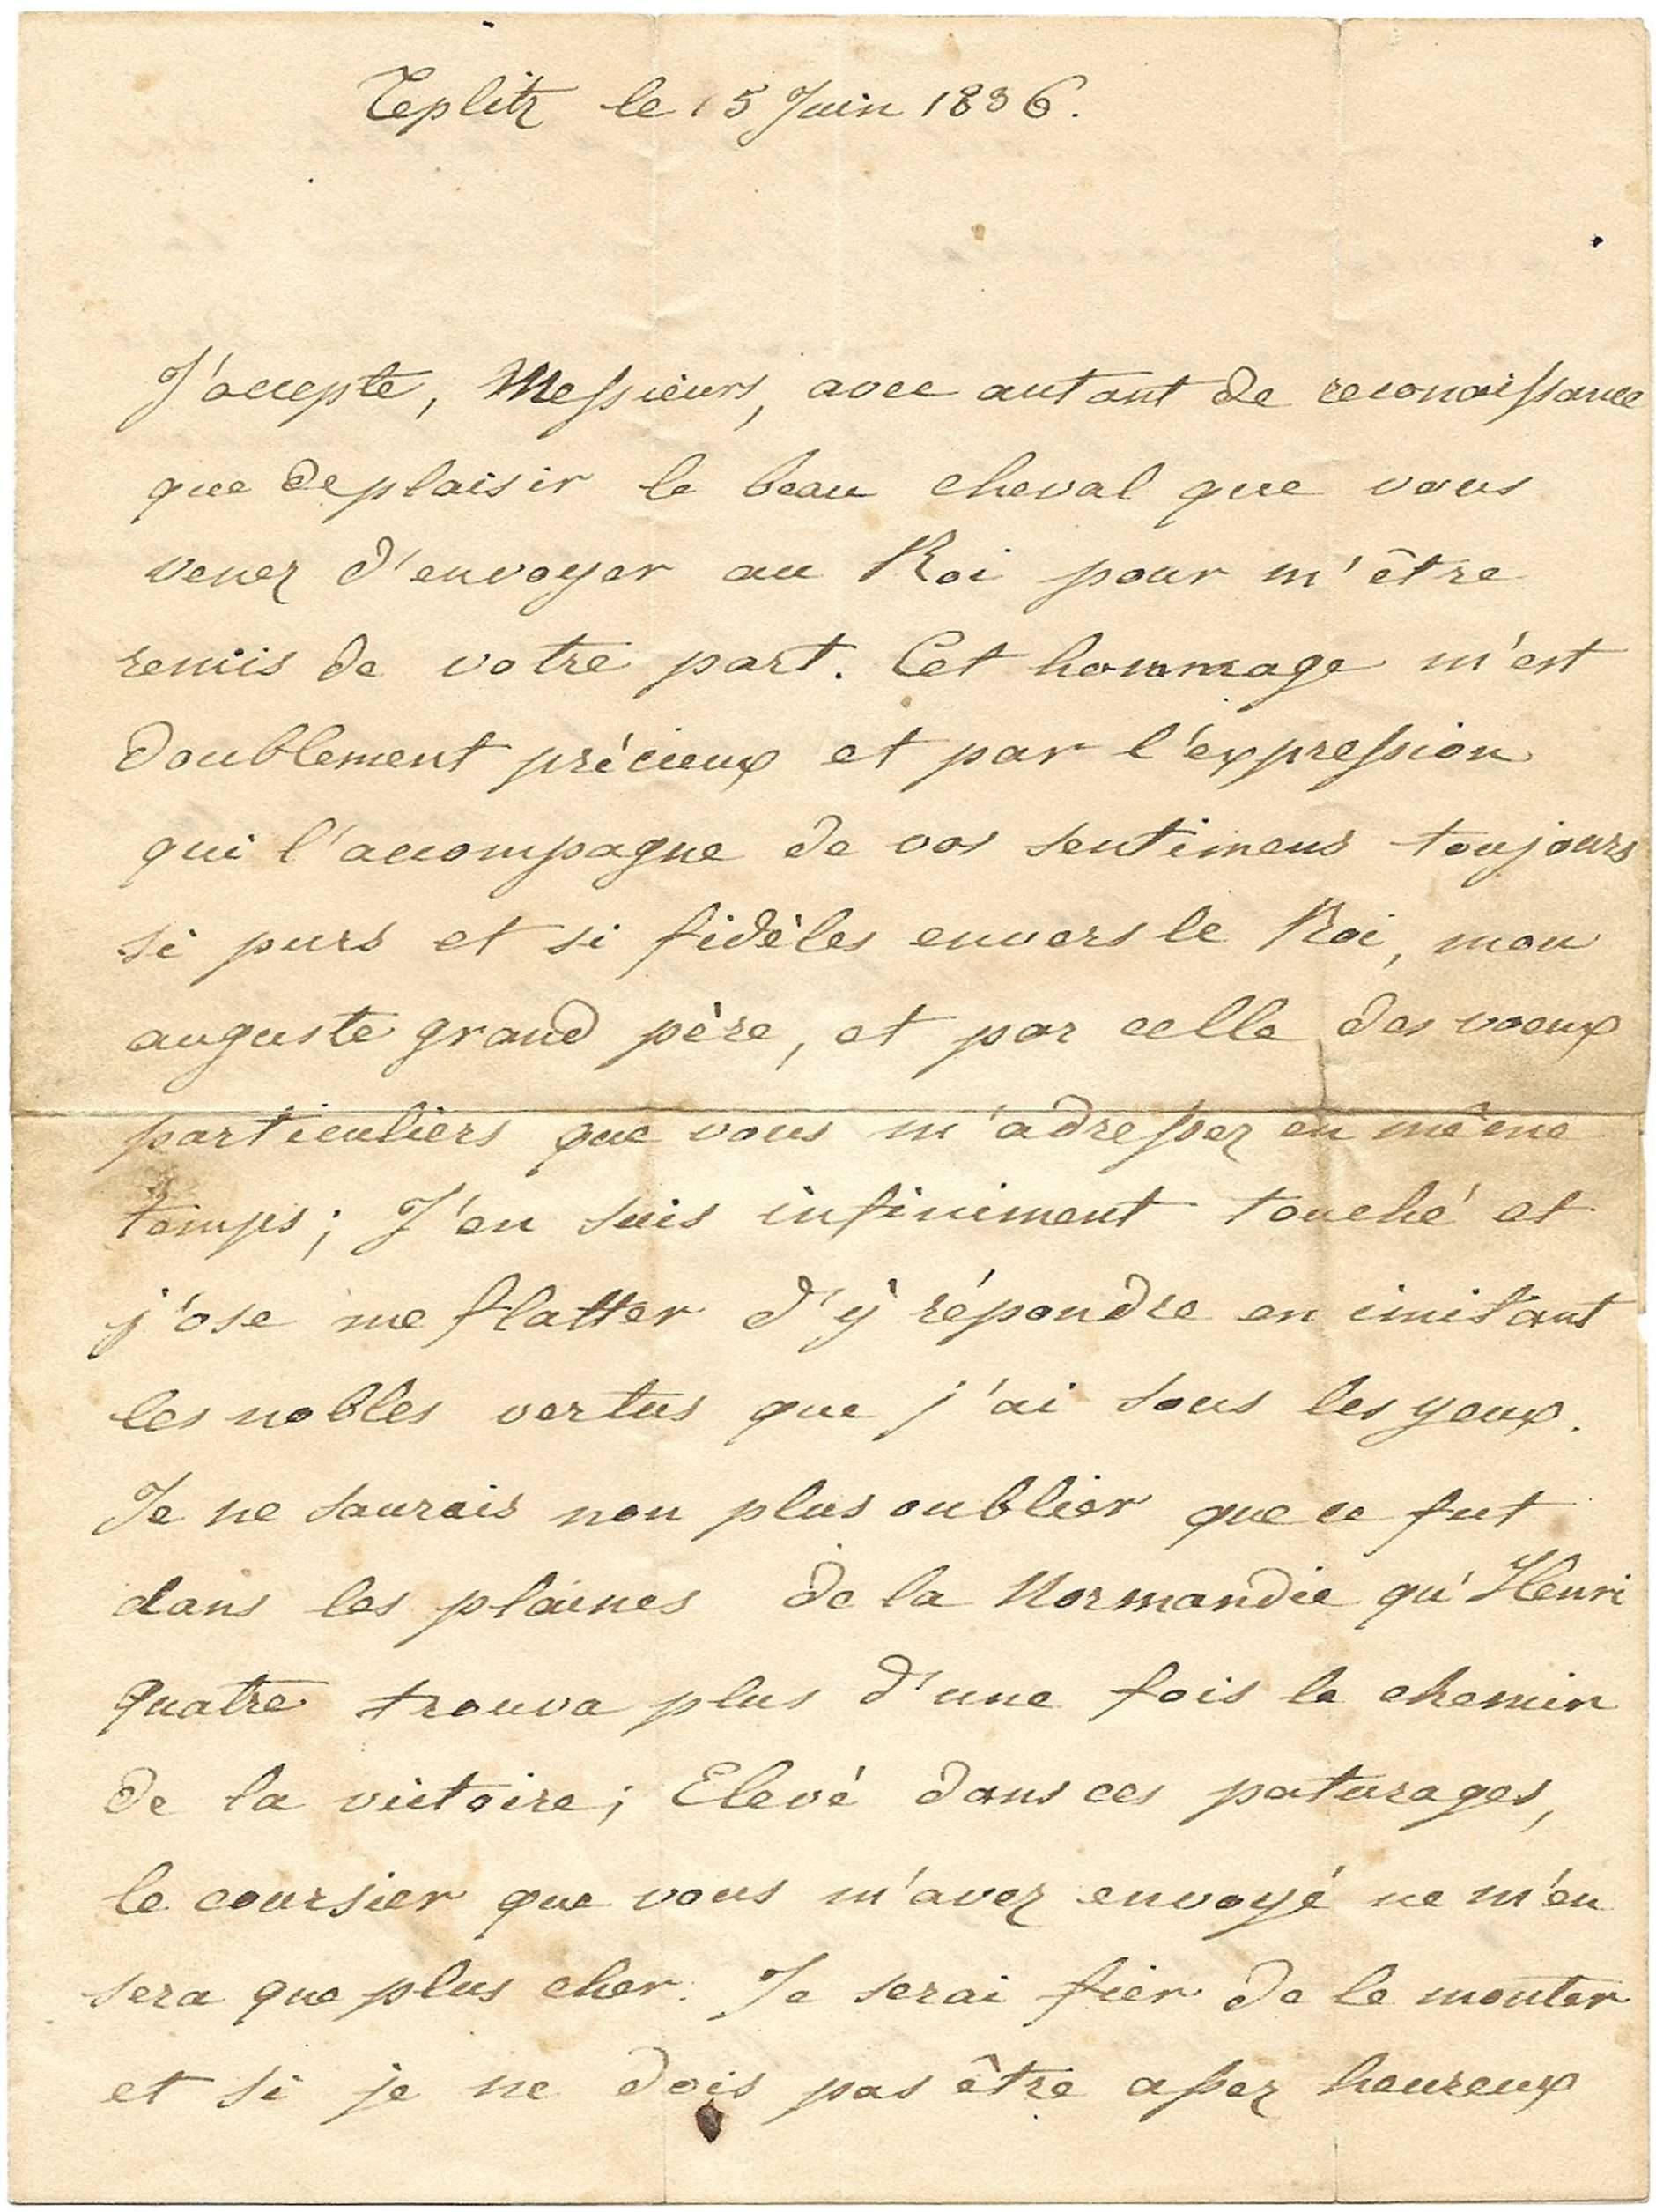 Teplitz le 15 Juin 1836.
J'accepte, Messieurs, avec autant de reconaissance
que de plaisir le beau cheval que vous
venez d'envoyer au Roi pour m'être
remis de votre part. Cet hommage m'est
doublement précieux et par l'expression
qui l'accompagne de vos sentimens toujours
si purs et si fidèles envers le Roi, mon
auguste grand père, et par celle des voeux
particuliers que vous m'adressez en même
temps; J'en suis infiniment touché et
j'ose me flatter d'y répondre en imitant
les nobles vertus que j'ai sous les yeux.
Je ne saurais non plus oublier que ce fut
dans les plaines de la Normandie qu'Henri
quatre trouva plus d'une fois le chemin
de la victoire; Elevé dans ces paturages,
le coursier que vous m'avez envoyé ne m'en
sera que plus cher. Je serai fier de le monter
et si je ne dois pas être assez heureux